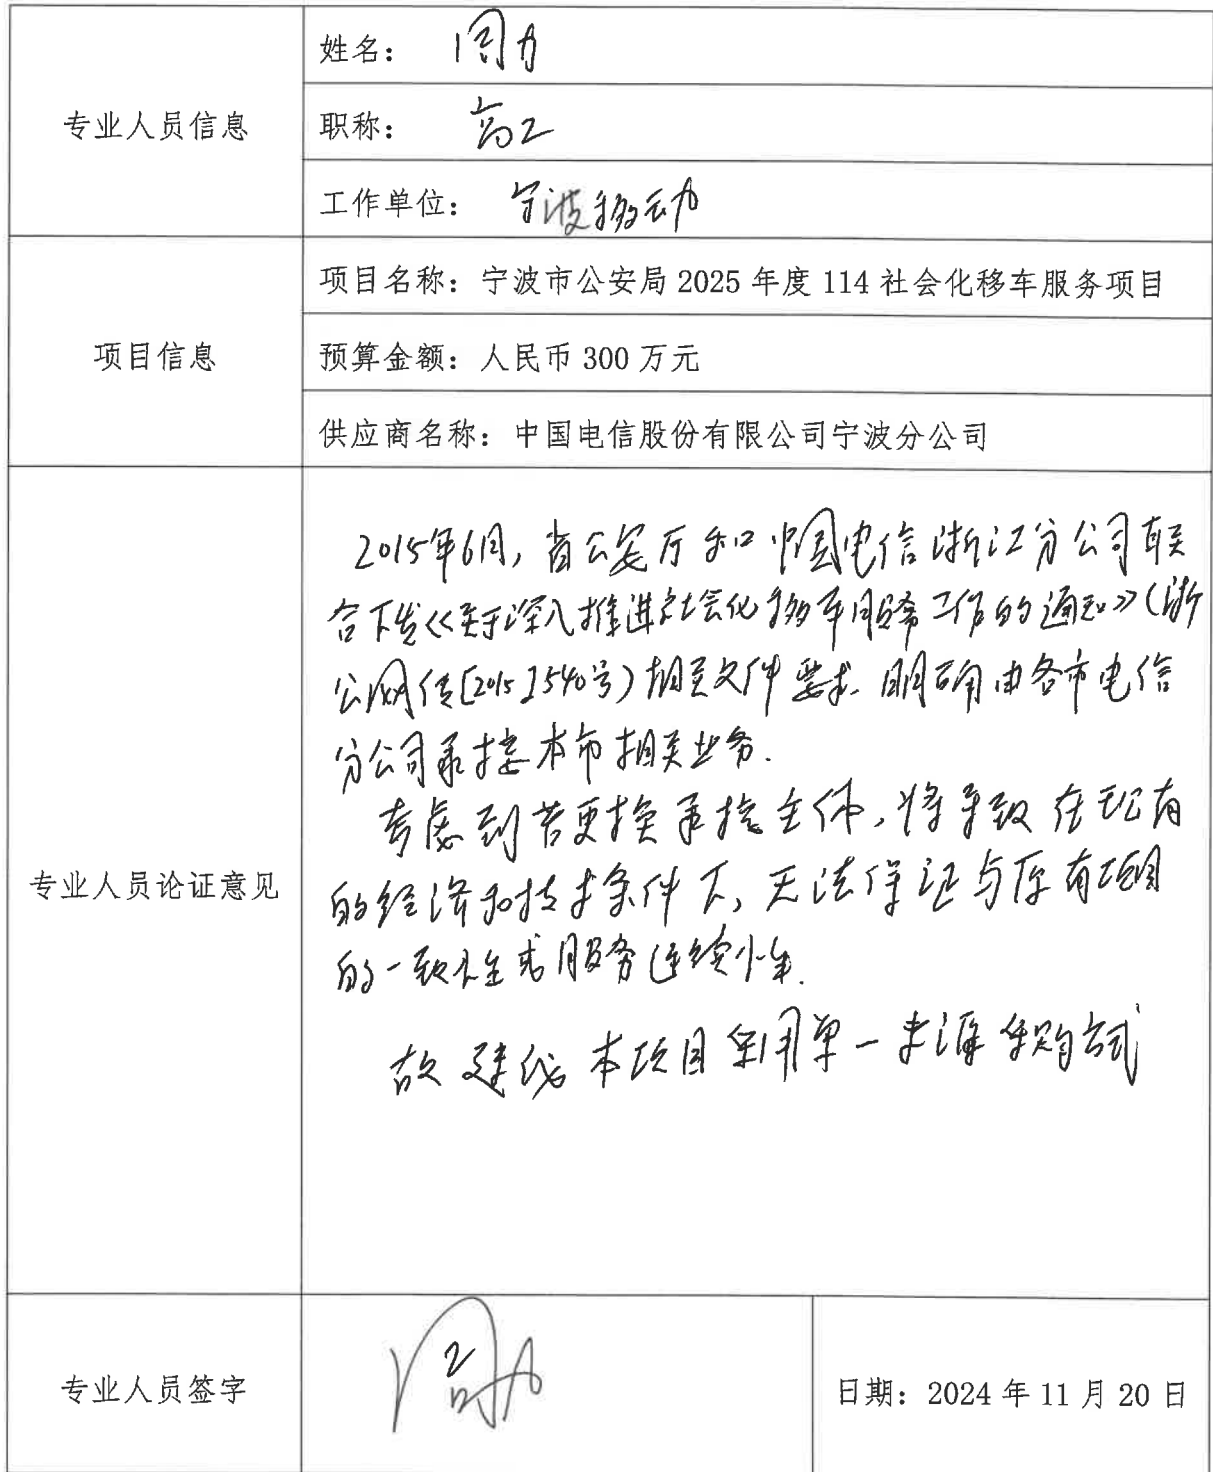 专业人员信息
姓名： 周力
职称： 高工
工作单位： 宁波移动
项目信息
项目名称：宁波市公安局 2025 年度 114 社会化移车服务项目
预算金额：人民币 300 万元
供应商名称：中国电信股份有限公司宁波分公司
专业人员论证意见
2015年6月，省公安厅和中国电信浙江分公司联
合下发《关于深入推进社会化移车服务工作的通知》（浙
公网传[2015]540号）相关文件要求，明确由各市电信
分公司承接本市相关业务.
考虑到若更换承接主体，将导致在现有
的经济和技术条件下，无法保证与原有项目
的一致性或服务连续性.
故建议本项目采用单一来源采购方式
专业人员签字
周力
日期：2024 年 11 月 20 日